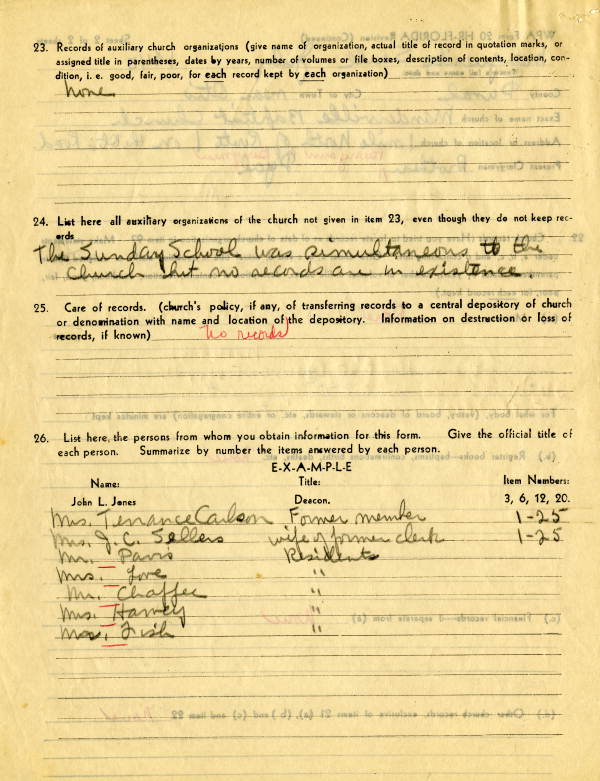 23. Records of auxiliary church organizations (give name of organization, actual title of record in quotation marks, or
assigned title in parentheses, dates by years, number of volumes or file boxes, description of contents, location, con-
dition, i. e. good, fair, poor, for each record kept by each organization)
None
24. List here all auxiliary organizations of the church not given in item 23, even though they do not keep rec-
ords
The Sunday School was simultaneous to the
Church but no records are in existence.
25. Care of records. (church's policy, if any, of transferring records to a central depository of church
or denomination with name and location of the depository. Information on destruction or loss of
records, if known) No records
26. List here, the persons from whom you obtain information for this form. Give the official title of
each person. Summarize by number the items answered by each person.
E-X-A-M-P-L-E
Name: Title: Item Numbers:
John L. Jones Deacon. 3, 6, 12, 20.
Mrs. Terrance Carlson Former member 1-25
Mrs. J. C. Sellers wife of former clerk 1-25
Mr. Parris Residents
Mrs. Love "
Mr. Chaffee "
Mrs. Harvey "
Mrs. Fish "